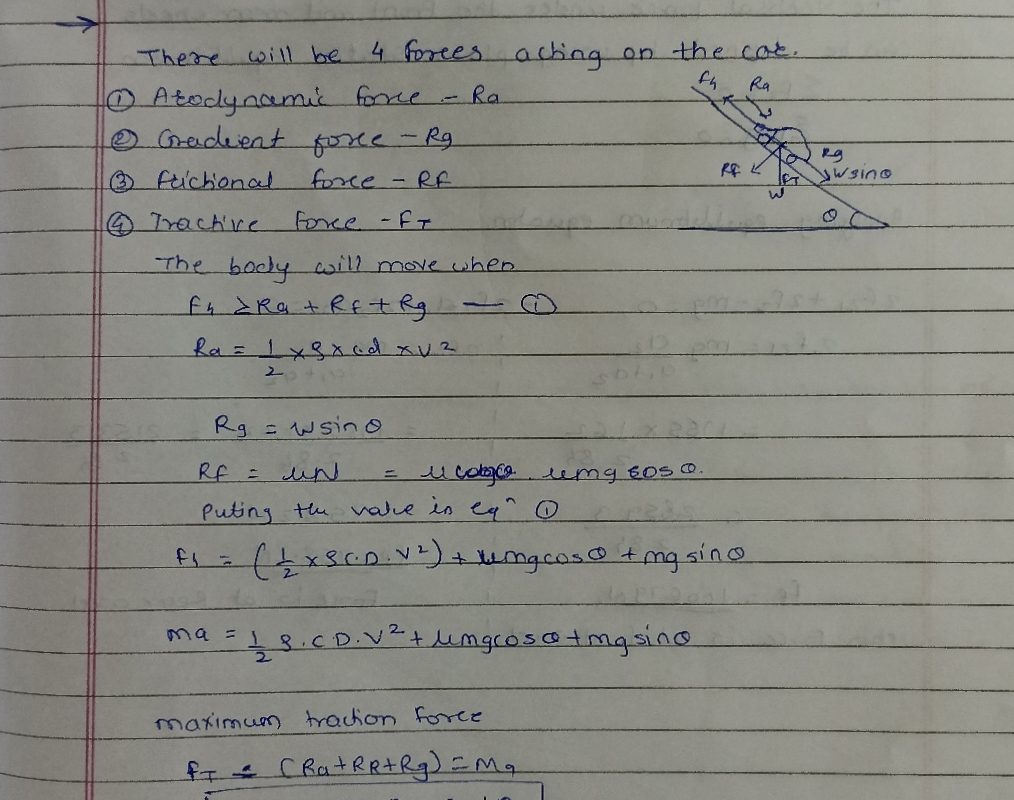 There will be 4 forces acting on the car.
① Aerodynamic force - Ra
② Gradient force - Rg
③ frictional force - RF
④ Tractive Force - FT
The body will move when
F₁ ≥ Ra + Rf + Rg — ①
Ra = 1/2 × ρ × c.d × v²
Rg = W sin θ
RF = μN = μmg cos θ.
Puting the value in eqⁿ ①
F₁ = (1/2 × ρ C.D. V²) + μmg cos θ + mg sin θ
ma = 1/2 ρ. C D. V² + μmg cos θ + mg sin θ
maximum traction force
FT = (Ra + RR + Rg) = Ma
F₁
Ra
Rg
RF
FT
W sin θ
W
θ